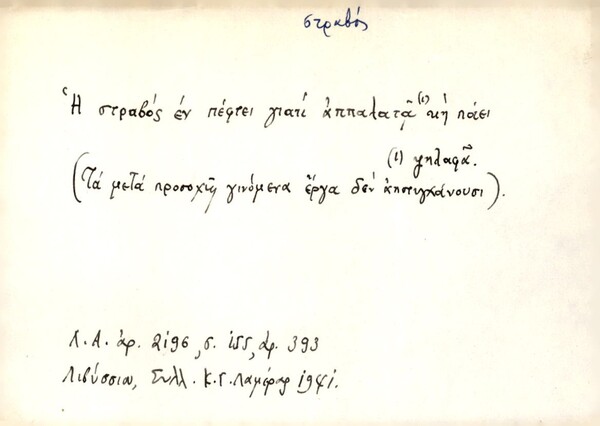 στραβός
Ἡ στραβός ἐν πέφτει γιατί ἀππαλατᾷ (1) κή πάει
(1) ψηλαφᾷ.
(Τά μετά προσοχῆς γινόμενα ἔργα δέν ἀποτυγχάνουσι).
Λ.Α. ἀρ. 2196, σ. 155, ἀρ. 393
Λιβύσσιον, Συλλ. Κ.Γ. Λαμέρας 1941.